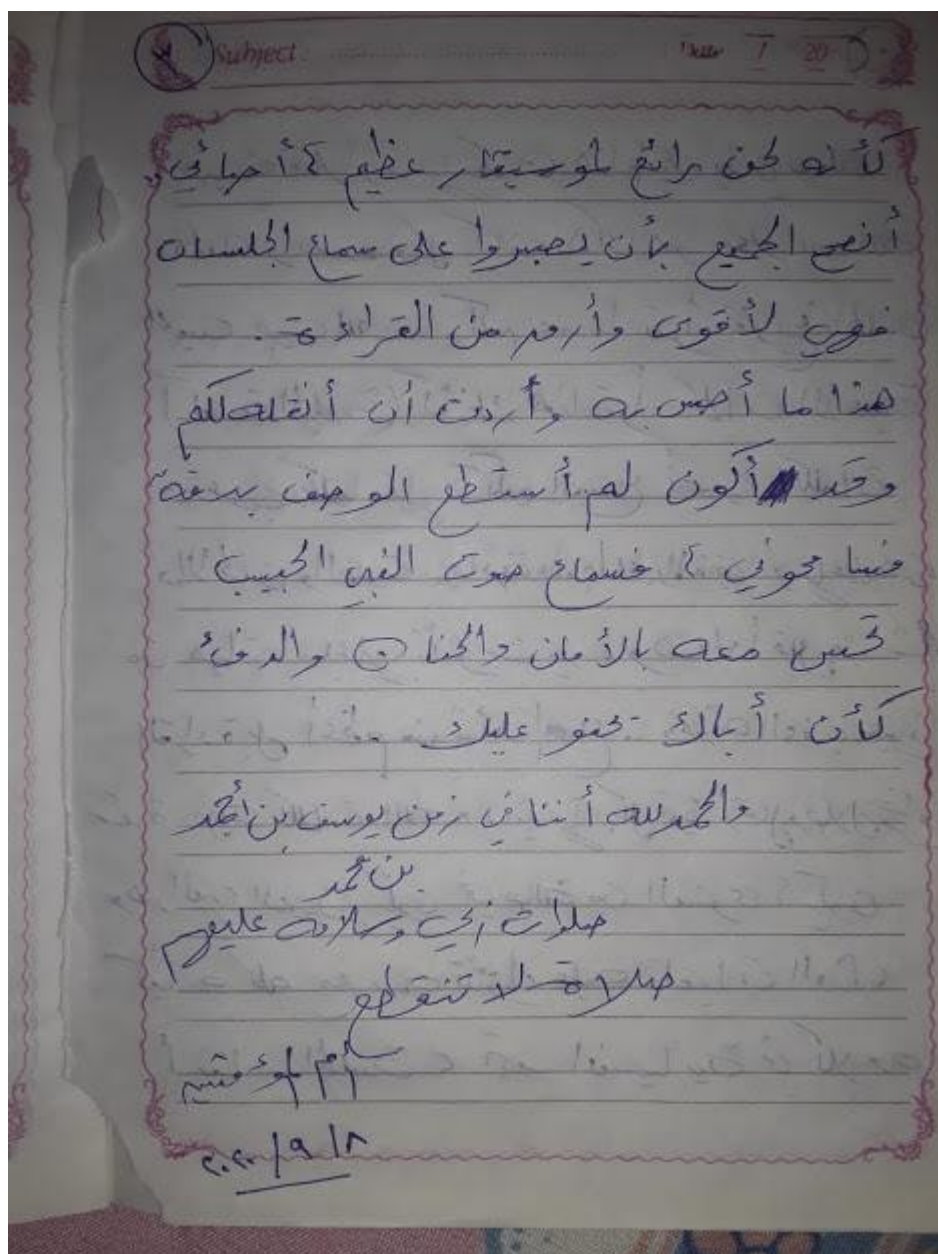 Subject: Date / 20
كأنه لحن رائع لموسيقار عظيم ، أحبائي
أنصح الجميع بأن يصبروا على سماع الجلسات
فهي لأقوى وأروع من القراءة .
هذا ما أحس به وأردت أن أنقله لكم
وقد أكون لم أستطع الوصف بدقة
فسامحوني ، فسماع صوت النبي الحبيب
تحس معه بالأمان والحنان والدفئ
كأن أباك يحنو عليك
والحمد لله أننا في زمن يوسف بن أحمد
بن محمد
صلوات ربي وسلامه عليهم
صلاة لا تنقطع
أم المؤمنين
٢٠٢٠/٩/٨